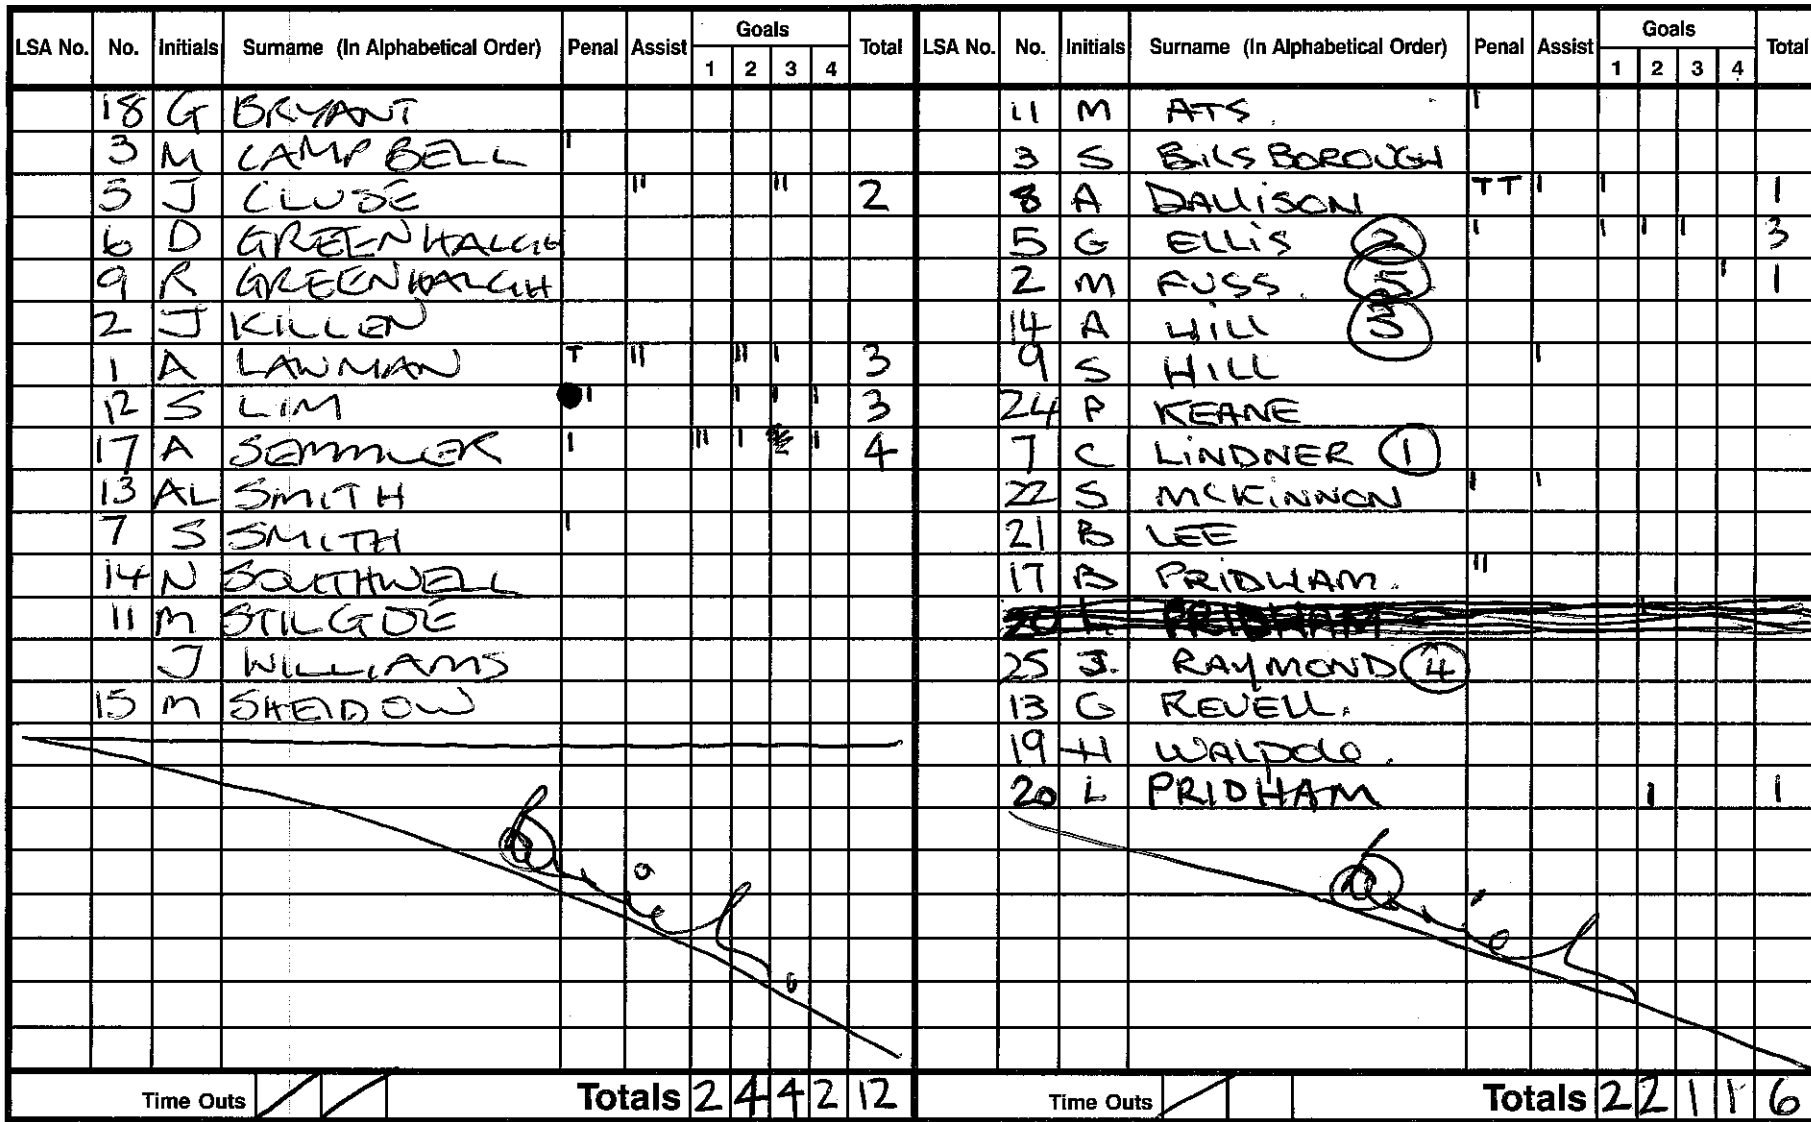 LSA No. No. Initials Surname (In Alphabetical Order) Penal Assist Goals 1 2 3 4 Total
18 G BRYANT
3 M CAMPBELL I
5 J CLUSE II II 2
6 D GREENHALGH
9 R GREENHALGH
2 J KILLEN
1 A LAWMAN T II II I 3
12 S LIM I I I I 3
17 A SEMMLER I II I I 4
13 AL SMITH
7 S SMITH I
14 N SOUTHWELL
11 M STILGOE
J WILLIAMS
15 M SHEIDOW
Time Outs / / Totals 2 4 4 2 12
LSA No. No. Initials Surname (In Alphabetical Order) Penal Assist Goals 1 2 3 4 Total
11 M ATS. I
3 S BILSBOROUGH
8 A DALLISON TT I I 1
5 G ELLIS 2 I I I I 3
2 M FUSS. 5 I 1
14 A HILL 3
9 S HILL I
24 P KEANE
7 C LINDNER 1
22 S MCKINNON I I
21 B LEE
17 B PRIDHAM. II
20 L PRIDHAM
25 J. RAYMOND 4
13 G REVELL.
19 H WALPOLE.
20 L PRIDHAM I 1
Time Outs / Totals 2 2 1 1 6